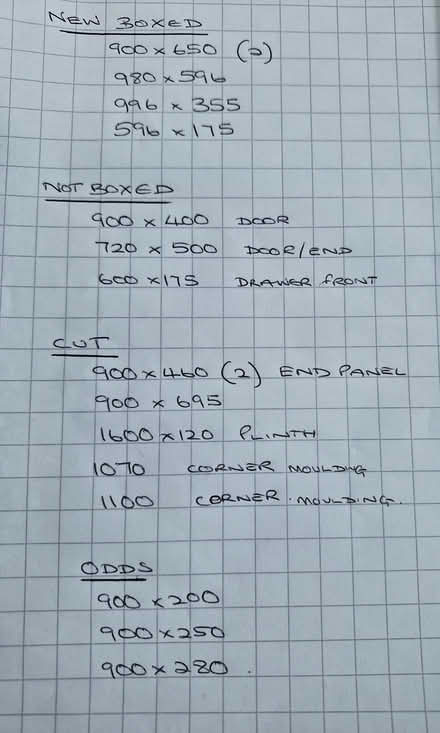 NEW BOXED
900 x 650 (2)
980 x 596
996 x 355
596 x 175
NOT BOXED
900 x 400 DOOR
720 x 500 DOOR/END
600 x 175 DRAWER FRONT
CUT
900 x 460 (2) END PANEL
900 x 695
1600 x 120 PLINTH
1070 CORNER MOULDING
1100 CORNER MOULDING.
ODDS
900 x 200
900 x 250
900 x 280.